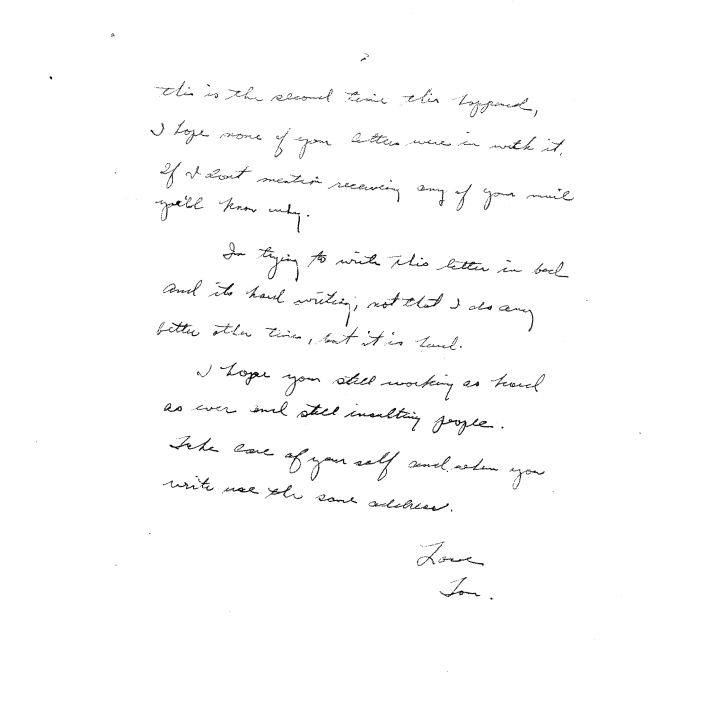 2
this is the second time this happened,
I hope none of your letters were in with it.
If I dont mention receiving any of your mail
you'll know why.
Im trying to write this letter in bed
and its hard writing, not that I do any
better other times, but it is hard.
I hope your still working as hard
as ever and still insulting people.
Take care of your self and when you
write use the same address.
Love